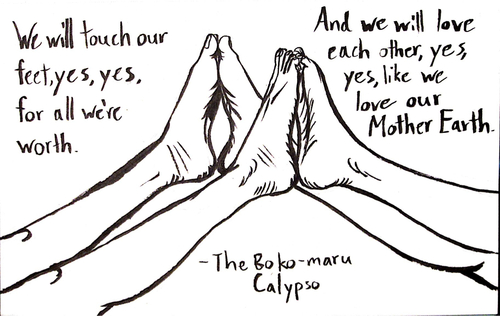 We will touch our
feet, yes, yes,
for all we're
worth.
And we will love
each other, yes,
yes, like we
love our
Mother Earth.
- The Boko-maru
Calypso